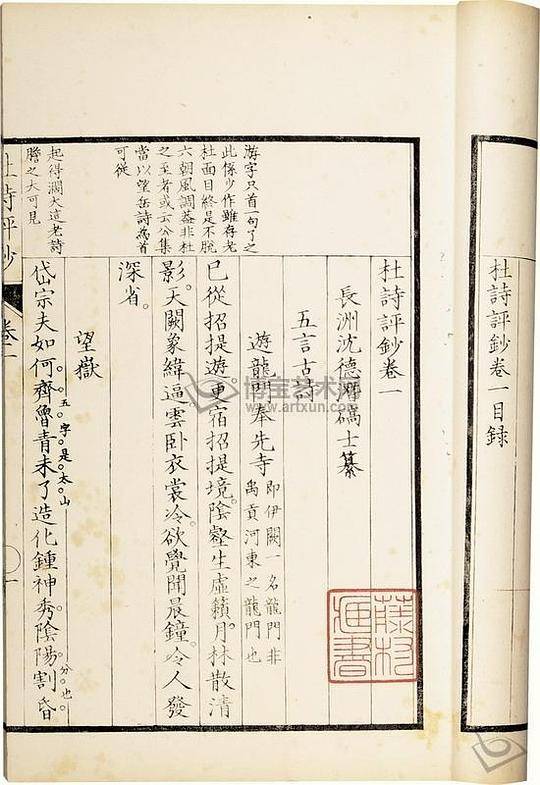 杜詩評鈔卷一目録
杜詩評鈔卷一
長洲沈德潛碻士纂
五言古詩
遊龍門奉先寺
即伊闕一名龍門非
禹貢河東之龍門也
已從招提遊更宿招提境陰壑生虛籟月林散清
影天闕象緯逼雲卧衣裳冷欲覺聞晨鐘令人發
深省
望嶽
岱宗夫如何齊魯青未了造化鍾神秀陰陽割昏
五字是太山
分也
游字只首一句了之
此係少作雖存老
杜面目終是不脫
六朝風調蓋非杜
之至者或云公集
當以望岳詩為首
可從
起得濶大這老詩
膽之大可見
杜詩評鈔
卷一
一
藤村
博宝艺术网
www.artxun.com